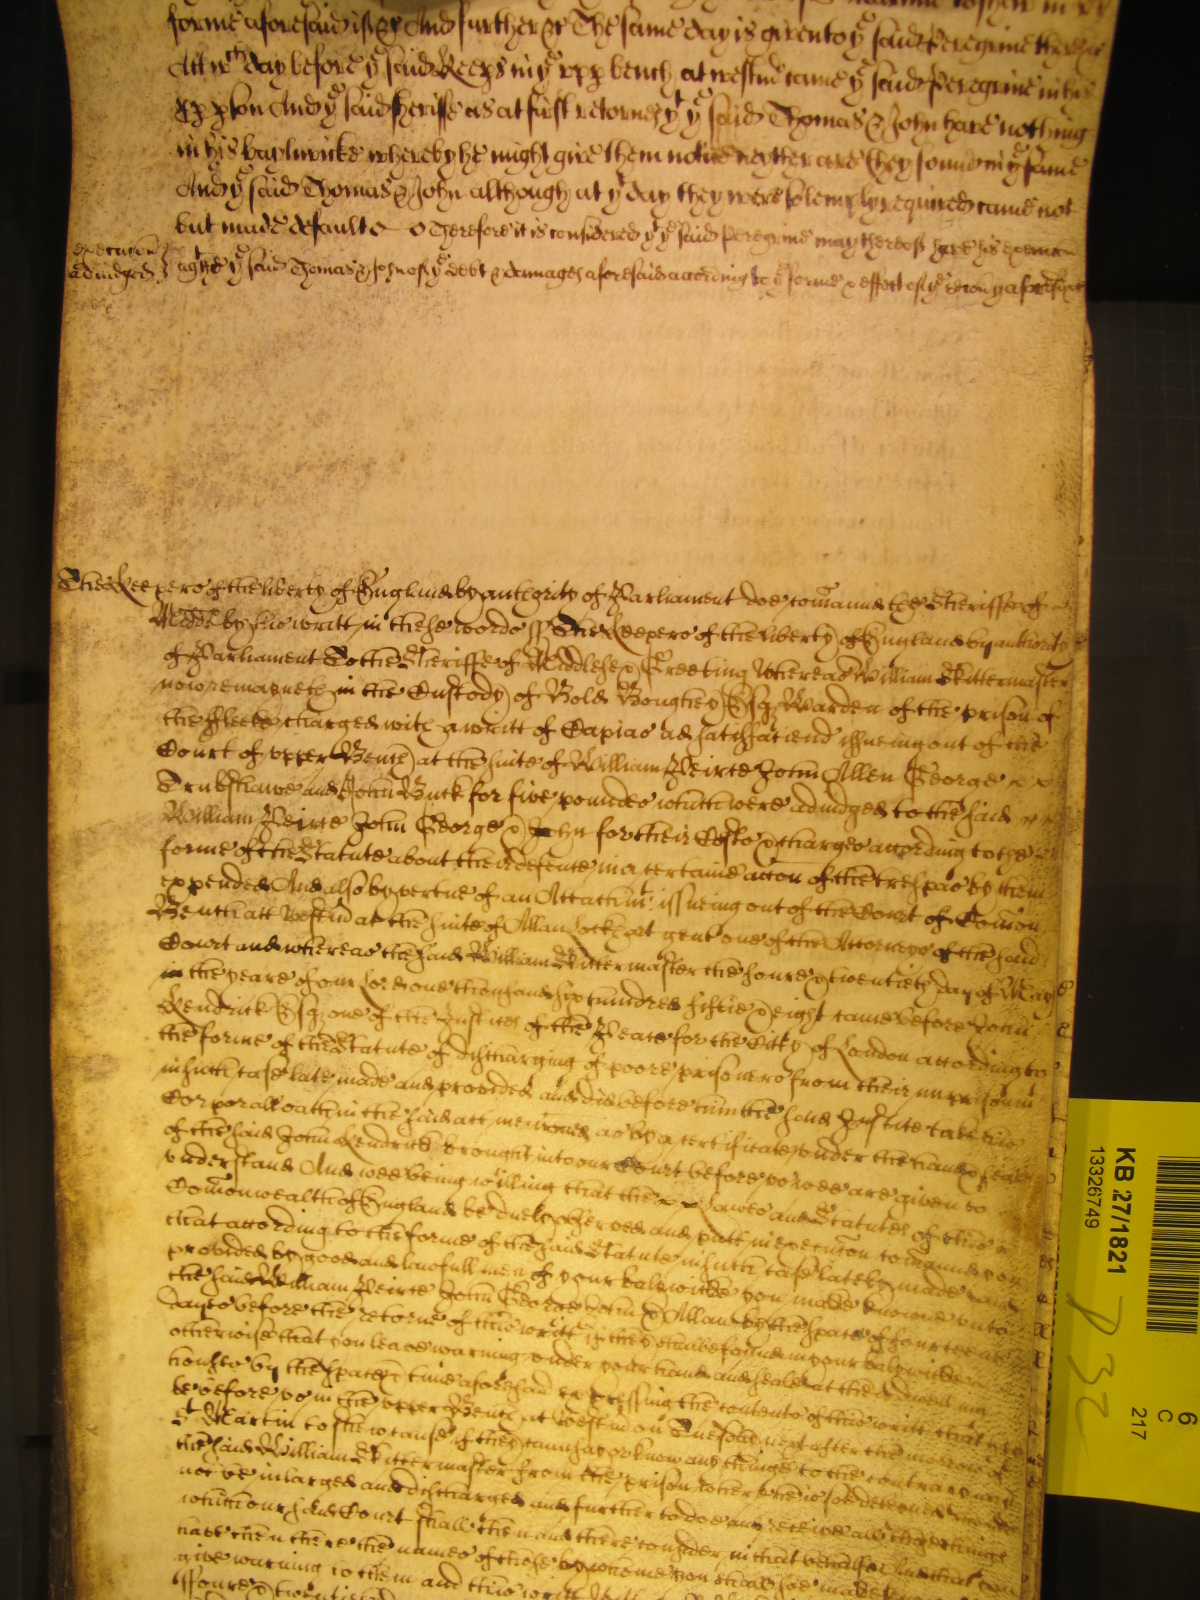 forme aforesaid is &c And further &c The same day is given to ye said Peregrine there &c
Att wch day before ye said Keeps in ye upp bench at westmr came ye said Peregrine in his
pp pson And ye said sheriffe as at first retorned yt ye said Thomas & John have nothing
in his baylywicke whereby he might give them notice neyther are they found in ye same
And ye said Thomas & John although at yt day they were solemply required came not
but made default Therefore it is considered yt ye said Peregrine may thereof have his execucon
execucon
adiudged
against ye said Thomas & John of ye debt & damages aforesaid according to ye forme & effect of ye recovy aforesaid &c
The Keepers of the liberty of England by authority of Parliament doe comaund the Sheriffe of
Midds by his writt in these words ss The Keepers of the liberty of England by authority
of Parliament To the Sheriffe of Middlesex Greeting Whereas William Skittermaster
now remayneth in the Custody of Bold Boughey Esqr Warden of the prison of
the ffleete charged with a writt of Capias ad satisfaciend issueing out of the
Court of upper Bench at the suite of William Peirce John Allen George
Trubshawe and John Buck for five pounds which were adiudged to the said
William Peirce John George & John for their Costs & charges according to the
forme of the Statute about their defence in a certaine accon of the trespas by them
expended And also by vertue of an Attachmt issueing out of the Court of Comon
Bench att Westmr at the suite of Allan Lockhart gent one of the Attorneys of the said
Court and whereas the said William Skittermaster the foure & twentieth day of May
in the yeare of our Lord one thousand six hundred fiftie & eight came before John
Kendrick Esqr one of the Justices of the Peace for the Citty of London according to
the forme of the Statute of discharging of poore prisoners from their imprisonmt
in such case late made and provided and did before him the said Justice take his
Corporall oath in the said act menconed as by a certificate under the hand & seale
of the said John Kendrick brought into our Court before us wee are given to
understand And wee being willing that the Lawes and Statutes of this
Comonwealth of England be duely observed and putt in execucon comaund you
that according to the forme of the said Statute in such case lately made and
provided by good and lawfull men of your baliwicke you make knowne unto
the said William Peirce John George John & Allan by the space of fourteene
dayes before the retorne of this writt if they can be found in your baliwicke
otherwise that you leave warning under your hand and seale at the
houses by the space & time aforesaid expressing the contents of this writt that they
be before us in the upper Bench at Westmr on Tuesday next after the morrow of
St Martin to shew cause if they can say or know any thinge to the contrary why
the said William Skittermaster from the prison where hee is soe deteyned should
not be inlarged and discharged and further to doe and receive all those things
which our said Court shall then and there consider in that behalfe And that you
have then there the names of those by whome you shall soe make
give warning to them and this writt
ffoure & twentieth
KB 27/1821
13326749
6
C
217
P32